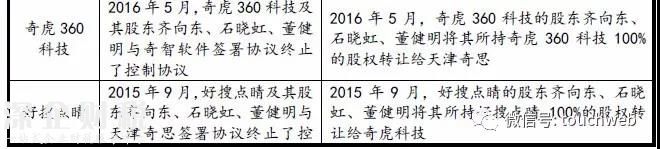 奇虎 360
科技
2016 年 5 月，奇虎 360 科技及
其股东齐向东、石晓虹、董健
明与奇智软件签署协议终止
了控制协议
2016 年 5 月，奇虎 360 科技的股东齐向东、
石晓虹、董健明将其所持奇虎 360 科技 100%
的股权转让给天津奇思
好搜点睛
2015 年 9 月，好搜点睛及其股
东齐向东、石晓虹、董健明与
天津奇思签署协议终止了控
2015 年 9 月，好搜点睛的股东齐向东、石晓
虹、董健明将其所持好搜点睛 100%的股权转
让给奇虎科技
微信号: touchweb